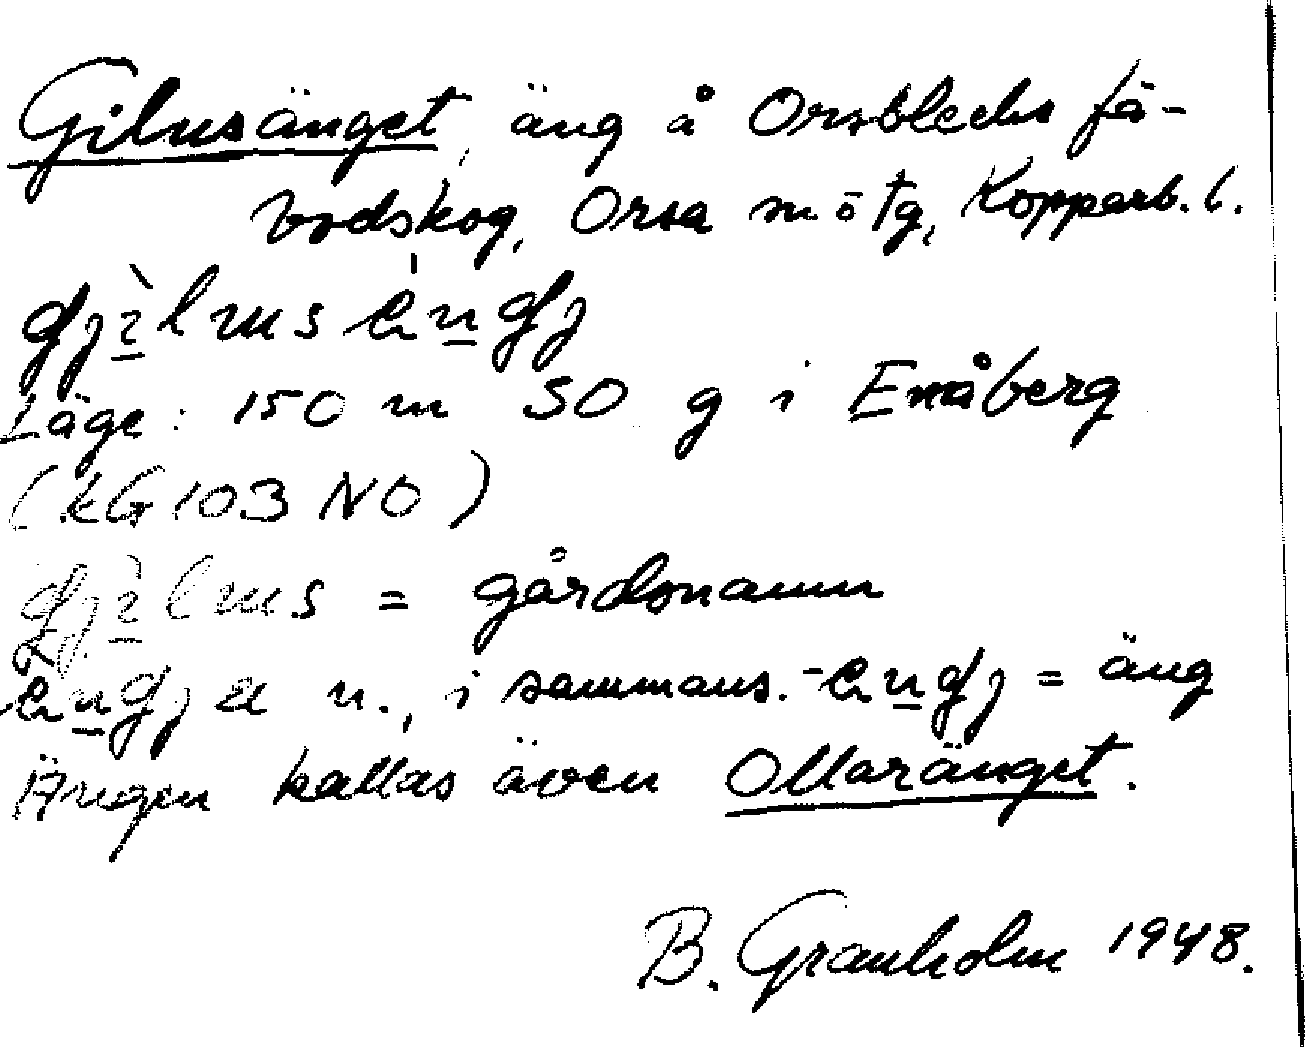 Gilusänget, äng å Orsblecks fä-
bodskog, Orsa m o tg, Kopparb. l.
Läge: 150 m SO g i Enåberg
(kG103 NO)
= gårdsnamn
n., i sammans. = äng
Ängen kallas även Ollaränget.
B. Granholm 1948.